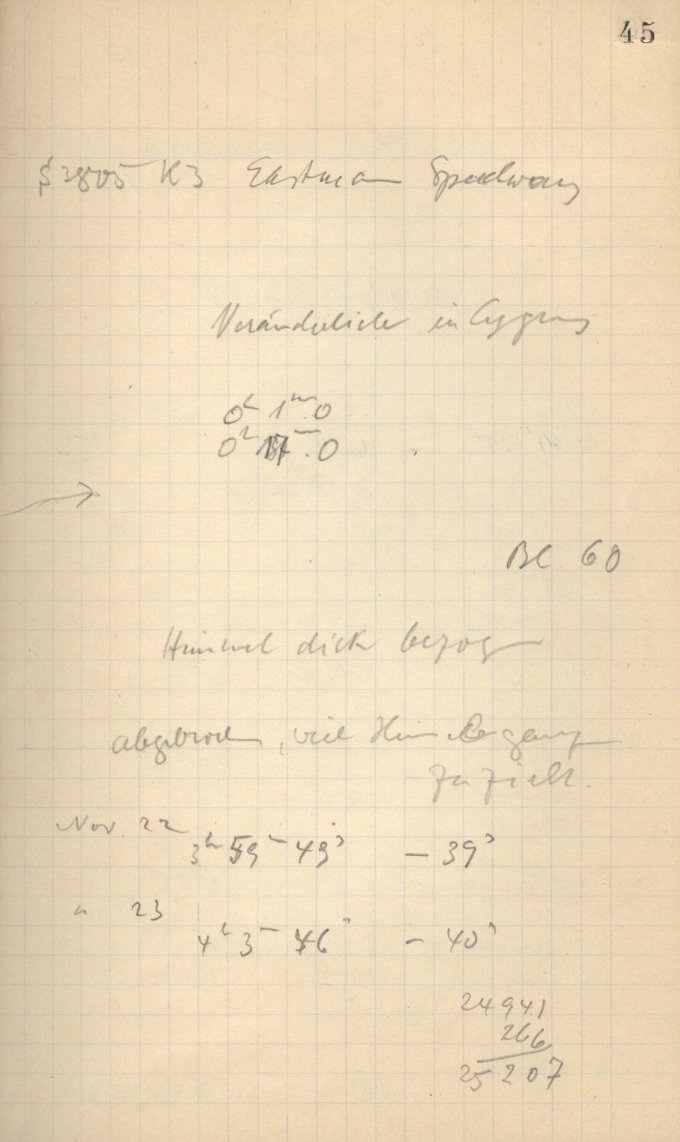 45
§ 3805 K3 Eastman Speedway
Veränderliche in Cygnus
0ʰ 1ᵐ.0
0ʰ 17ᵐ.0
Bl 60
Himmel dick bezogen
abgebrochen, weil Himmel ganz
zu zieht.
Nov. 22
3ʰ 59ᵐ 49ˢ − 39ˢ
" 23
4ʰ 3ᵐ 46ˢ − 40ˢ
24941
266
25207